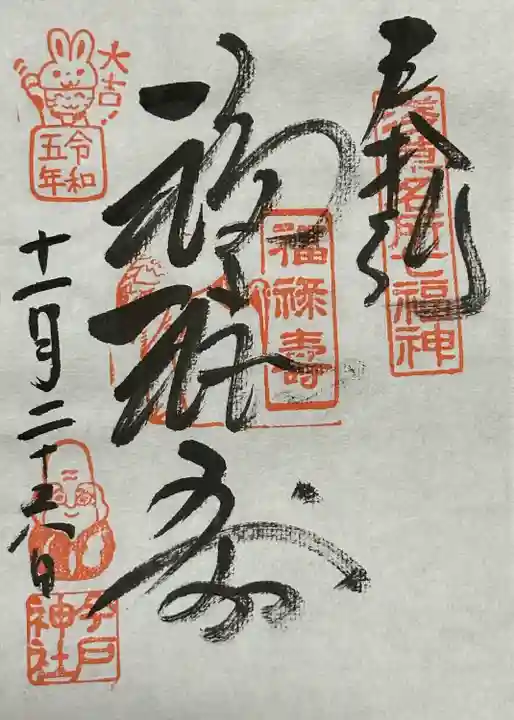 奉拝
七福神
福禄寿
福禄壽
大吉!
令和
五年
十一月二十六日
今戸
神社